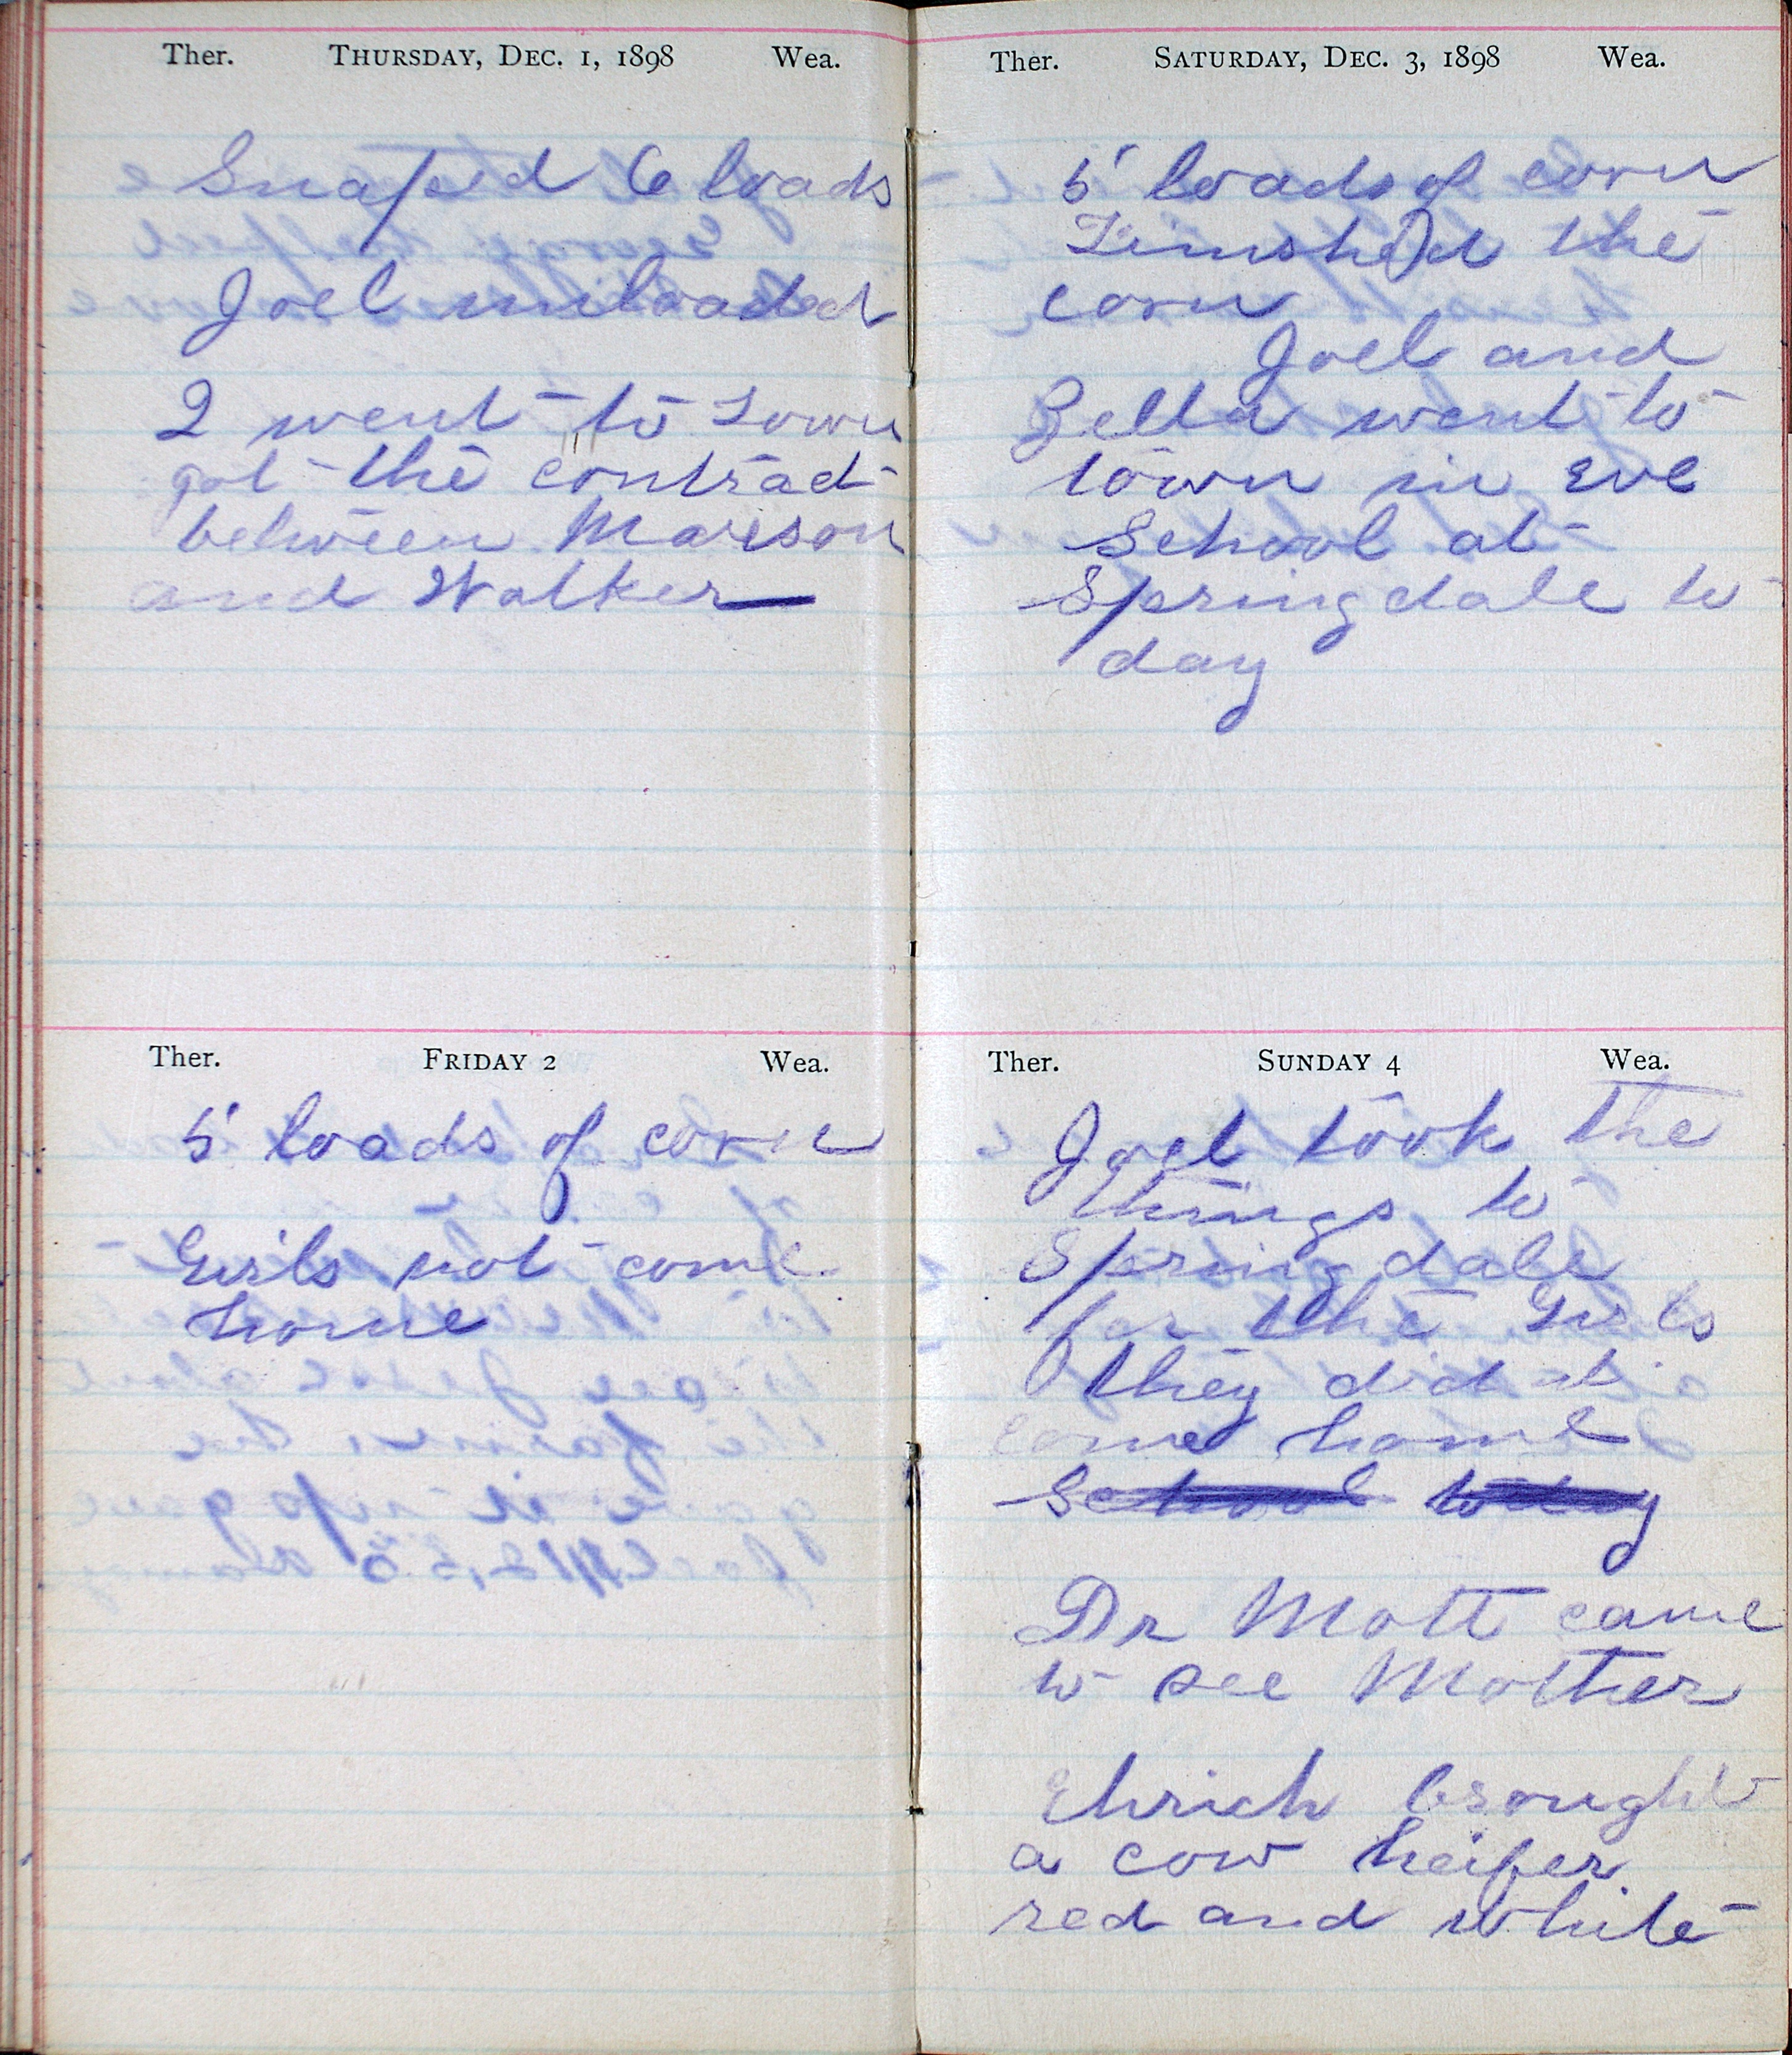 Ther. THURSDAY, DEC. 1, 1898 Wea.
Snaped 6 loads
Joel unloaded
I went to Town
got the contract
between Marison
and Walker
Ther. FRIDAY 2 Wea.
5 loads of corn
Girls not come
home
Ther. SATURDAY, DEC. 3, 1898 Wea.
5 loads of corn
Finshed the
corn
Joel and
Zella went to
town in Eve
School at
Springdale to
day
Ther. SUNDAY 4 Wea.
Joel took the
things to
Springdale
for the Girls
they did nt
come home
School today
Dr Mott came
to see Mother
Ehrich brought
a cow heifer
red and white